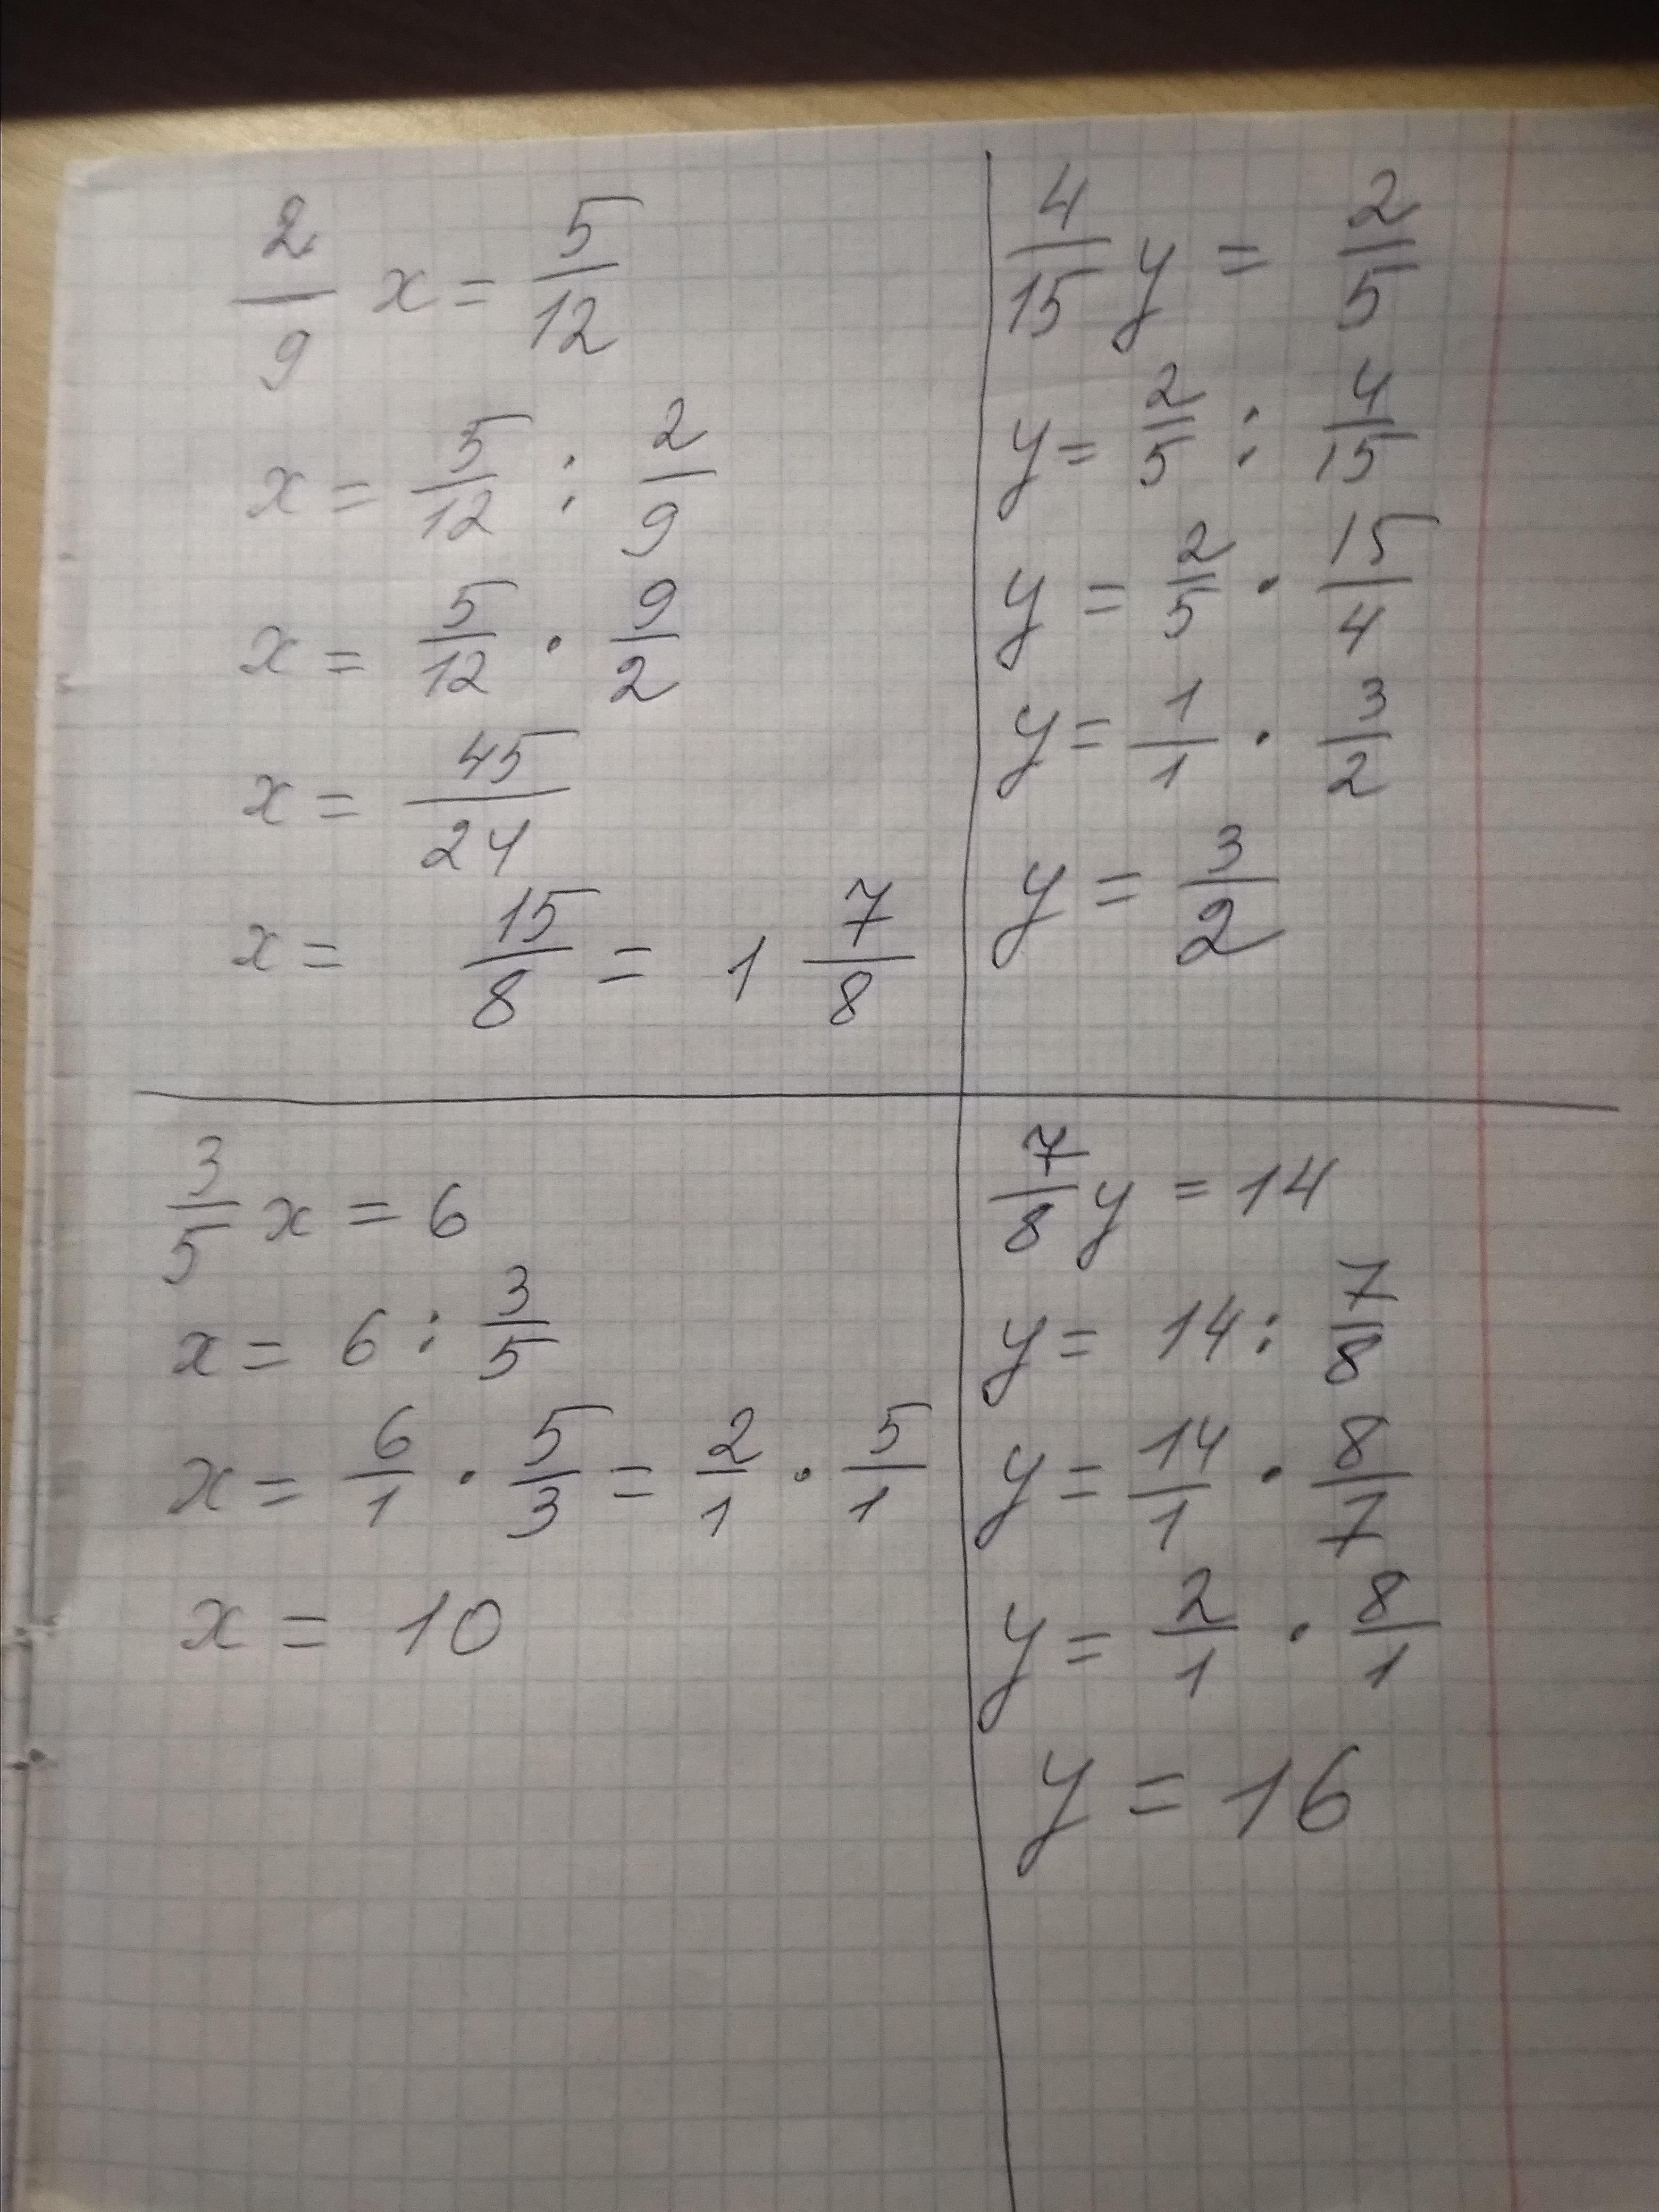 2/9 x = 5/12
x = 5/12 : 2/9
x = 5/12 · 9/2
x = 45/24
x = 15/8 = 1 7/8
4/15 y = 2/5
y = 2/5 : 4/15
y = 2/5 · 15/4
y = 1/1 · 3/2
y = 3/2
3/5 x = 6
x = 6 : 3/5
x = 6/1 · 5/3 = 2/1 · 5/1
x = 10
7/8 y = 14
y = 14 : 7/8
y = 14/1 · 8/7
y = 2/1 · 8/1
y = 16